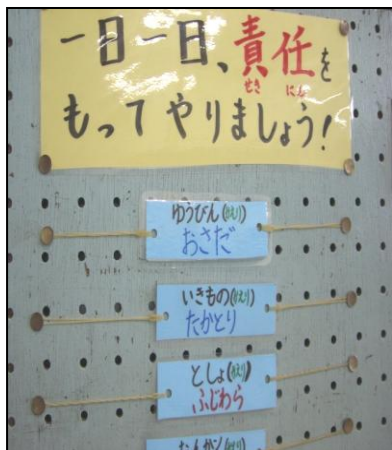 一日一日、責任を
せき にん
もってやりましょう!
ゆうびん(かえり)
おさだ
いきもの(かえり)
たかとり
としょ(かえり)
ふじわら